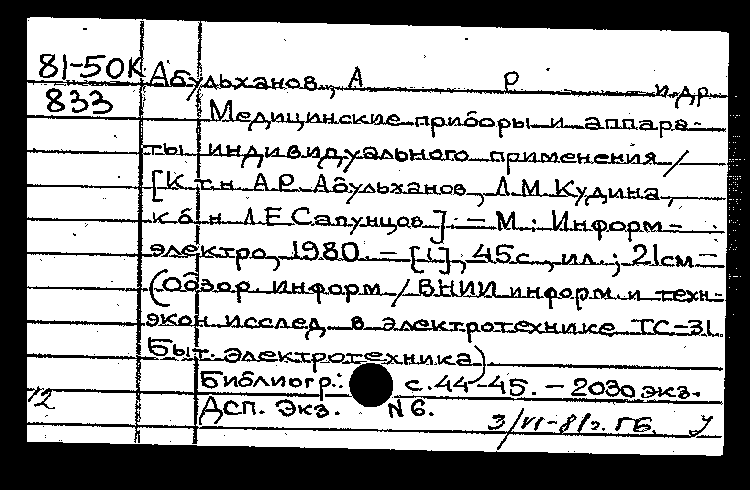 81-50К Абульханов, А Р и др
833 Медицинские приборы и аппара-
ты индивидуального применения /
[К т. н А.Р. Абульханов, Л.М. Кудина,
к б н Л.Е Сапунцов]. – М.: Информ-
электро, 1980. – [1], 45 с., ил.; 21 см –
(Обзор. информ / ВНИИ информ. и техн-
экон исслед. в электротехнике ТС-31
Быт. электротехника).
Библиогр.: с. 44-45. – 2030 экз.
12 Дсп. Экз. N 6.
3/VI-81г. ГБ. У